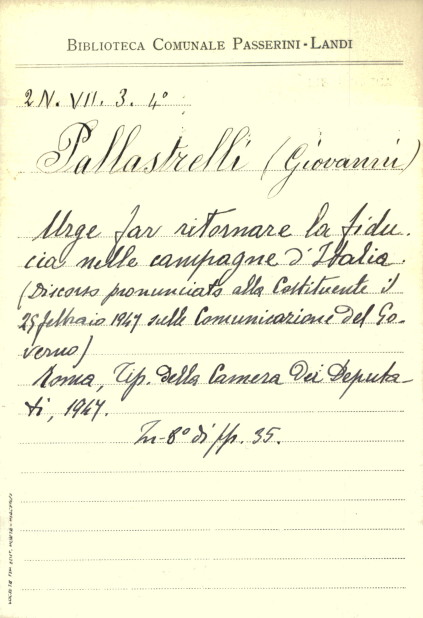 BIBLIOTECA COMUNALE PASSERINI-LANDI
2N. VII. 3. 4°
Pallastrelli (Giovanni)
Urge far ritornare la fidu-
cia nelle campagne d'Italia.
(Discorso pronunciato alla Costituente il
25 febbraio 1947 sulle Comunicazione del Go-
verno)
Roma, Tip. della Camera dei Deputa-
ti, 1947.
In-8° di pp. 35.